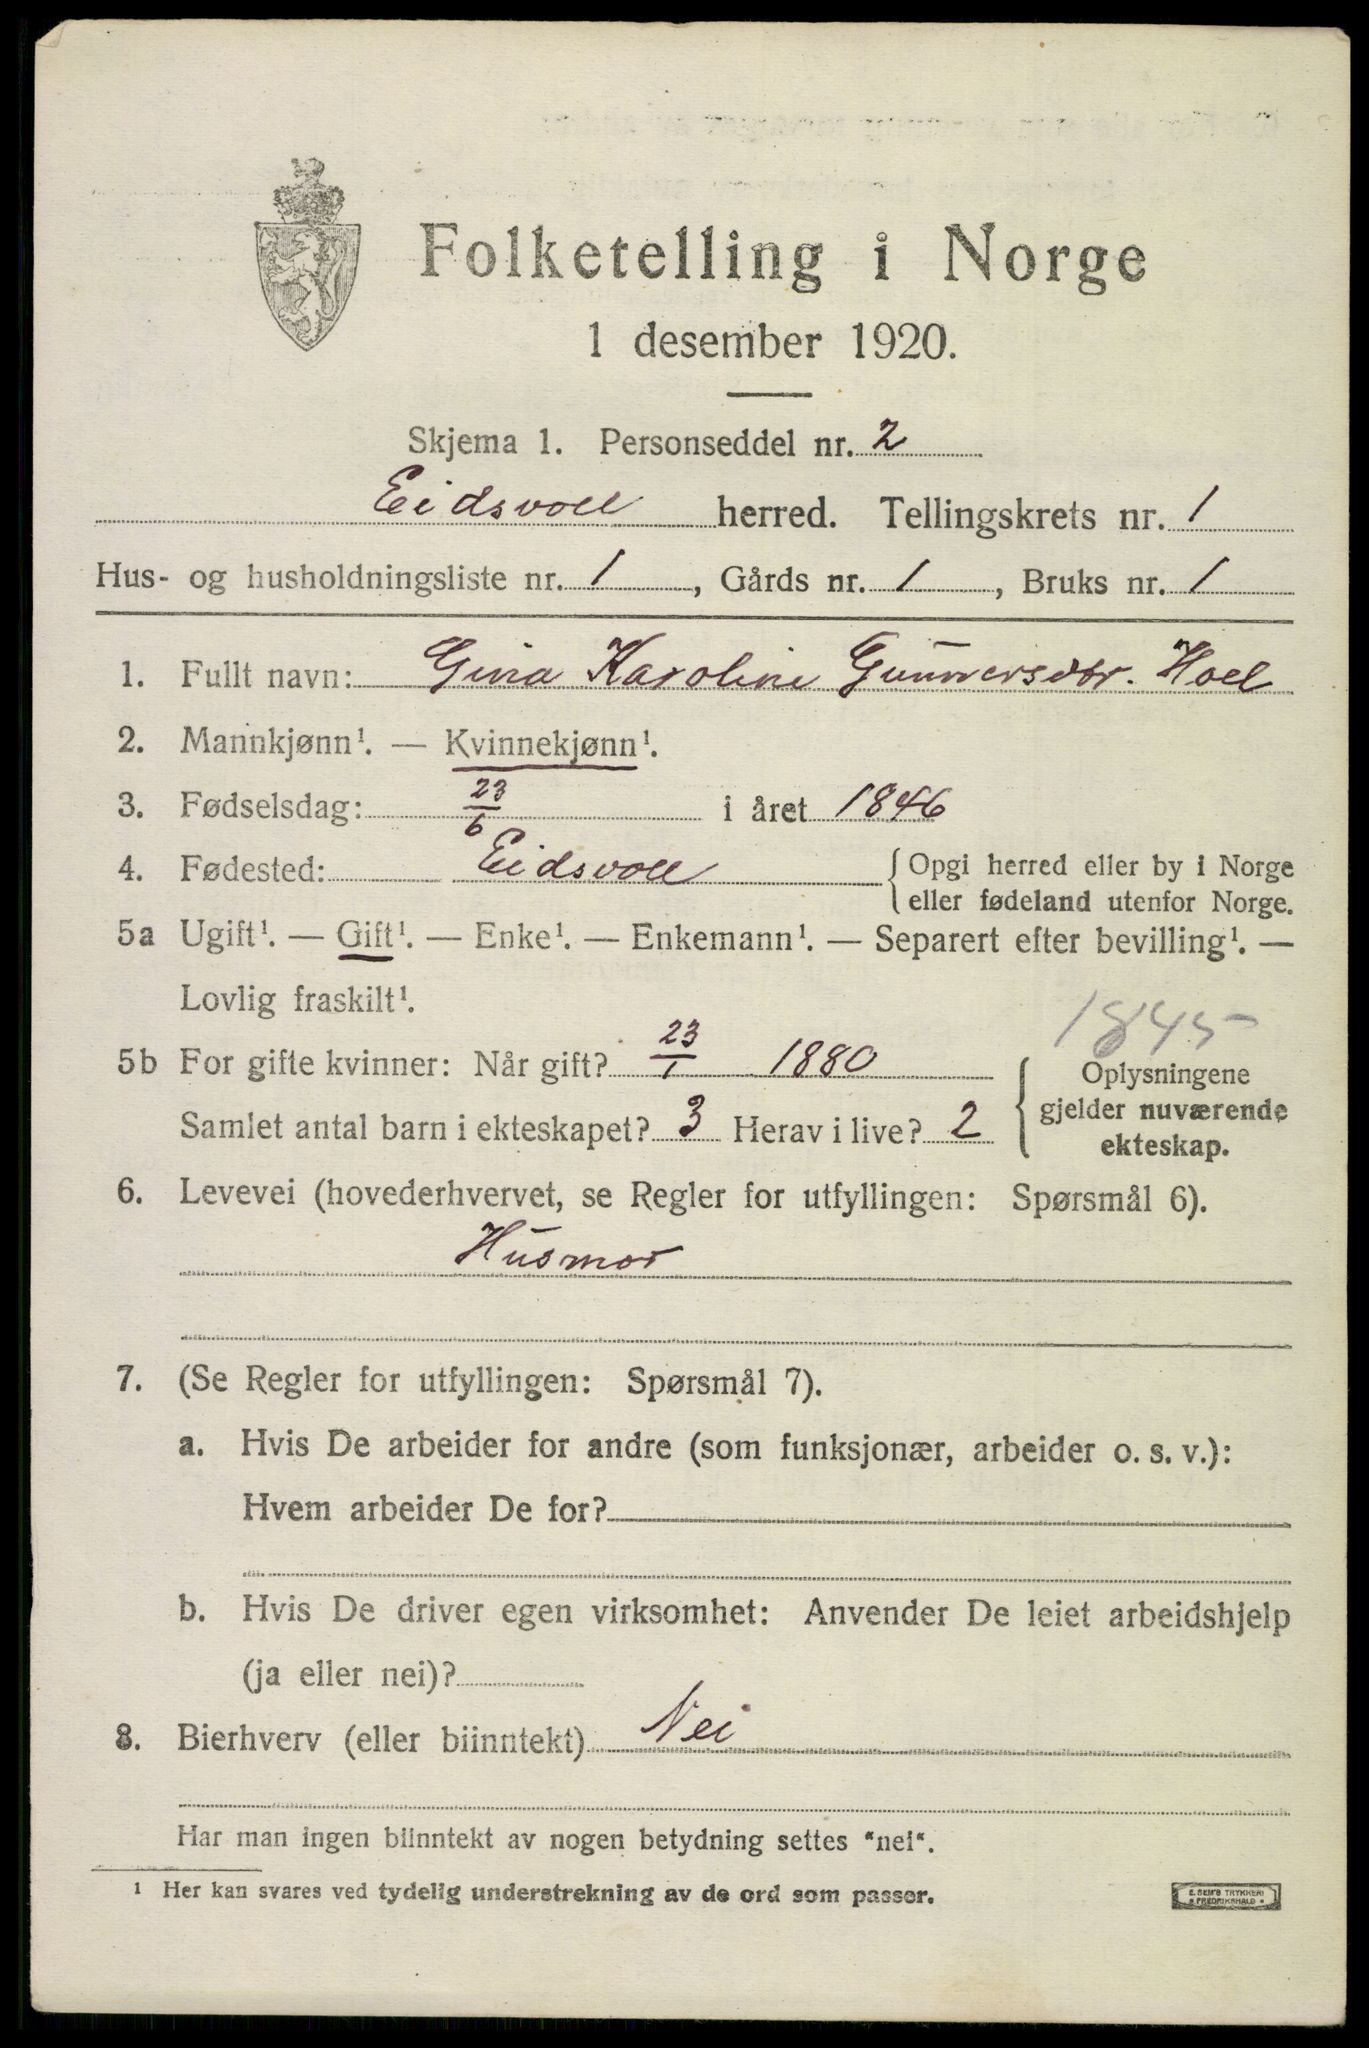 Folketelling i Norge
1 desember 1920.
Skjema 1. Personseddel nr. 2
Eidsvoll herred. Tellingskrets nr. 1
Hus- og husholdningsliste nr. 1, Gårds nr. 1, Bruks nr. 1
1. Fullt navn: Gina Karoline Gunnersdtr. Hoel
2. Mannkjønn¹. — Kvinnekjønn¹.
3. Fødselsdag: 23/6 i året 1846
4. Fødested: Eidsvoll {Opgi herred eller by i Norge
eller fødeland utenfor Norge.
5a Ugift¹. — Gift¹. — Enke¹. — Enkemann¹. — Separert efter bevilling¹. —
Lovlig fraskilt¹.
1845
5b For gifte kvinner: Når gift? 23/1 1880
Samlet antal barn i ekteskapet? 3 Herav i live? 2
{Oplysningene
gjelder nuværende
ekteskap.
6. Levevei (hovederhvervet, se Regler for utfyllingen: Spørsmål 6).
Husmor
7. (Se Regler for utfyllingen: Spørsmål 7).
a. Hvis De arbeider for andre (som funksjonær, arbeider o. s. v.):
Hvem arbeider De for?
b. Hvis De driver egen virksomhet: Anvender De leiet arbeidshjelp
(ja eller nei)?
8. Bierhverv (eller biinntekt) Nei
Har man ingen biinntekt av nogen betydning settes "nei".
¹ Her kan svares ved tydelig understrekning av de ord som passer.
E. SEM'S TRYKKERI
* FREDRIKSHALD *